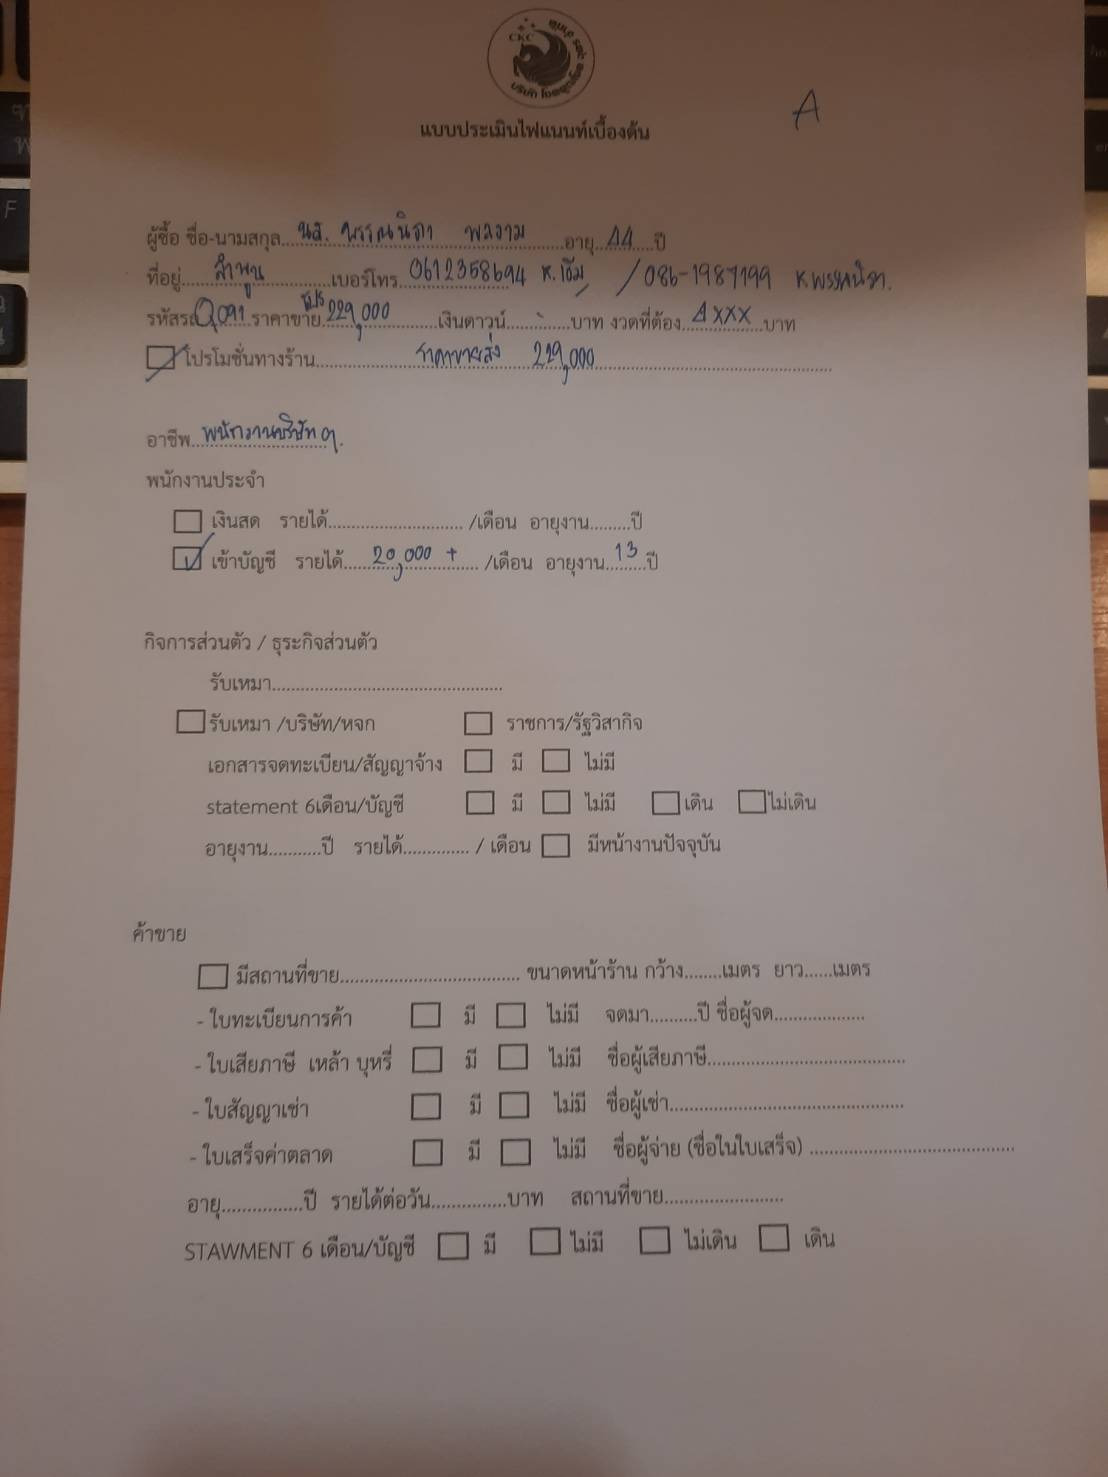 CKC
A
แบบประเมินไฟแนนท์เบื้องต้น
ผู้ซื้อ ชื่อ-นามสกุล....นส. พรรณนิภา พลงาม....อายุ..44..ปี
ที่อยู่....ลำพูน....เบอร์โทร..0612358694 ค.เอ๋ม / 086-1987199 ค.พรรณนิภา.
รหัสรถ Q091 ราคาขาย โปร 229,000....เงินดาวน์....-....บาท งวดที่ต้อง..4xxx..บาท
โปรโมชั่นทางร้าน....ราคาขายส่ง 229,000....
อาชีพ..พนักงานบริษัท ๆ.
พนักงานประจำ
เงินสด รายได้............................ /เดือน อายุงาน.........ปี
เข้าบัญชี รายได้......20,000 +...... /เดือน อายุงาน..13..ปี
กิจการส่วนตัว / ธุระกิจส่วนตัว
รับเหมา................................................
รับเหมา /บริษัท/หจก ราชการ/รัฐวิสากิจ
เอกสารจดทะเบียน/สัญญาจ้าง มี ไม่มี
statement 6เดือน/บัญชี มี ไม่มี เดิน ไม่เดิน
อายุงาน...........ปี รายได้.............. / เดือน มีหน้างานปัจจุบัน
ค้าขาย
มีสถานที่ขาย..................................... ขนาดหน้าร้าน กว้าง........เมตร ยาว......เมตร
- ใบทะเบียนการค้า มี ไม่มี จดมา..........ปี ชื่อผู้จด...................
- ใบเสียภาษี เหล้า บุหรี่ มี ไม่มี ชื่อผู้เสียภาษี.........................................
- ใบสัญญาเช่า มี ไม่มี ชื่อผู้เช่า.................................................
- ใบเสร็จค่าตลาด มี ไม่มี ชื่อผู้จ่าย (ชื่อในใบเสร็จ) ..........................................
อายุ.................ปี รายได้ต่อวัน................บาท สถานที่ขาย.........................
STAWMENT 6 เดือน/บัญชี มี ไม่มี ไม่เดิน เดิน